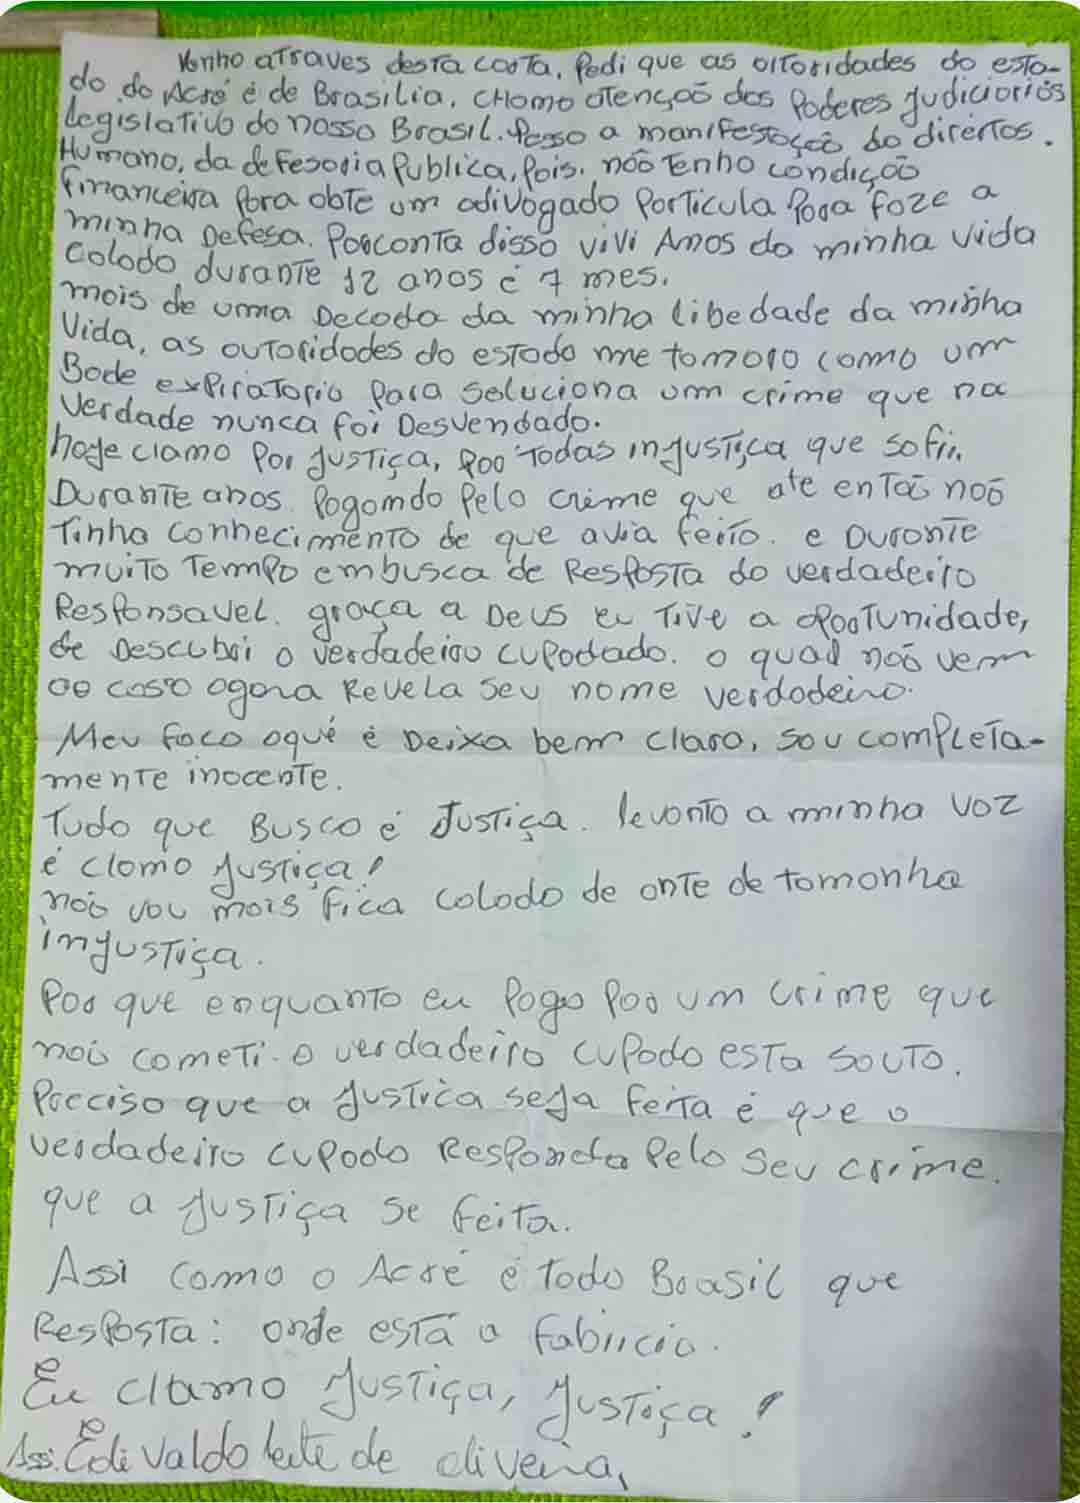 Venho atraves desta carta, Pedi que as oltoridades do esta-
do do Acré é de Brasilia, chamo atençoõ dos Poderes Judiciorios
Legislativo do nosso Brasil. Posso a manifestaçoõ do direitos.
Humano, da defesoria Publica, Pois. noõ Tenho condiçoõ
financeira Para obte um adivogado Particula Para faze a
minha Defesa. Porconta disso vivi Anos da minha vida
Calado durante 12 anos é 7 mes.
mais de uma Decada da minha libedade da minha
Vida, as outoridades do estado me tomaro como um
Bode expiratorio Para soluciona um crime que na
verdade nunca foi Desvendado.
hoje clamo Por justiça, Por Todas injustiça que sofri.
Durante anos. Pagando Pelo crime que ate entaõ noõ
Tinha conhecimento de que avia feito. e Durante
muito Tempo em busca de Resposta do verdadeiro
Responsavel. graça a Deus eu Tive a oportunidade,
de Descubri o verdadeiro cupadado. o qual noõ vem
ao caso agora Revela seu nome verdadeiro.
Meu foco oqué é Deixa bem claro, sou completa-
mente inocente.
Tudo que Busco é Justiça. levanto a minha voz
é clamo justiça!
noõ vou mais fica calado de ante de tamanha
injustiça.
Por que enquanto eu Pago Por um crime que
noõ cometi. o verdadeiro cupado esta souto.
Preciso que a justiça seja feita é que o
verdadeiro cupado Responda Pelo seu crime.
que a justiça se feita.
Assi como o Acré é Todo Brasil que
Resposta: onde está a Fabiricia.
Eu clamo justiça, justiça!
Ass: Edivaldo leite de oliveira,